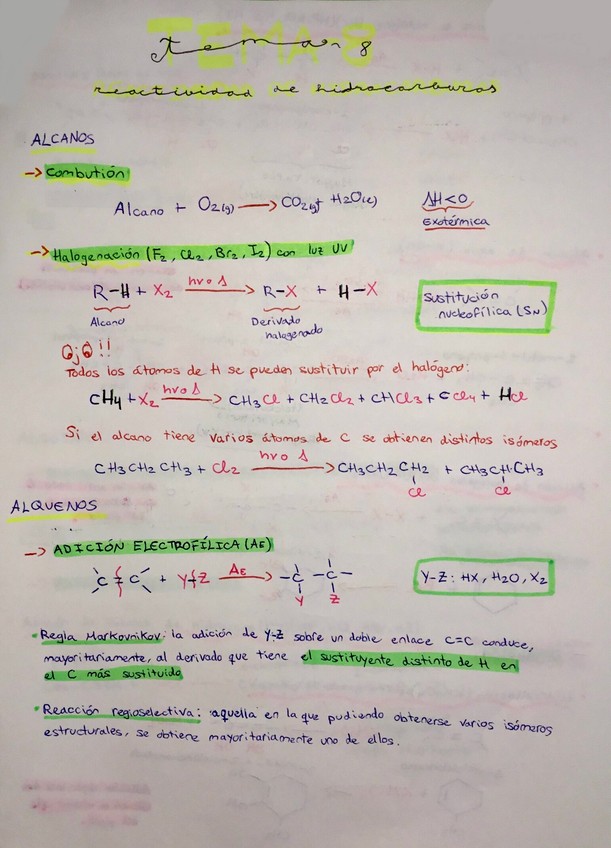 TEMA-8
tema 8
reactividad de hidrocarburos
ALCANOS
→ Combutión
Alcano + O2(g) → CO2(g)+ H2O(l) ΔH<0
Exotérmica
→ Halogenación (F2, Cl2, Br2, I2) con luz UV
R-H + X2 hν o Δ → R-X + H-X
Alcano Derivado halogenado
Sustitución nucleofílica (SN)
Ojo!!
Todos los átomos de H se pueden sustituir por el halógeno:
CH4 + X2 hν o Δ → CH3Cl + CH2Cl2 + CHCl3 + CCl4 + HCl
Si el alcano tiene varios átomos de C se obtienen distintos isómeros
CH3CH2CH3 + Cl2 hν o Δ → CH3CH2CH2 + CH3CHCH3
Cl Cl
ALQUENOS
→ ADICIÓN ELECTROFÍLICA (AE)
C=C + Y-Z AE → -C-C-
Y Z
Y-Z: HX, H2O, X2
• Regla Markovnikov: la adición de Y-Z sobre un doble enlace C=C conduce,
mayoritariamente, al derivado que tiene el sustituyente distinto de H en
el C más sustituido
• Reacción regioselectiva: aquella en la que pudiendo obtenerse varios isómeros
estructurales, se obtiene mayoritariamente uno de ellos.